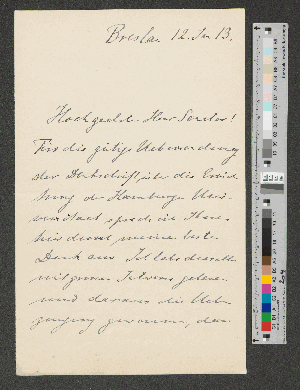 Breslau 12. Jan 13.
Hochgeehrter Herr Senator!
Für die gütige Uebersendung
der Denkschrift über die Errich-
tung der Hamburger Uni-
versität spreche ich Ihnen
hierdurch meinen besten
Dank aus. Ich habe dieselbe
mit grossem Interesse gelesen
und daraus die Ueber-
zeugung gewonnen, dass